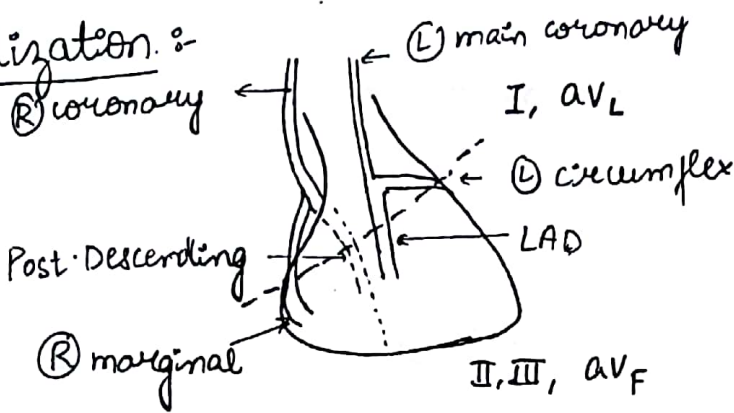 ization :-
Ⓛ main coronary
Ⓡ coronary
I, aVL
Ⓛ circumflex
LAD
Post. Descending
Ⓡ marginal
II, III, aVF